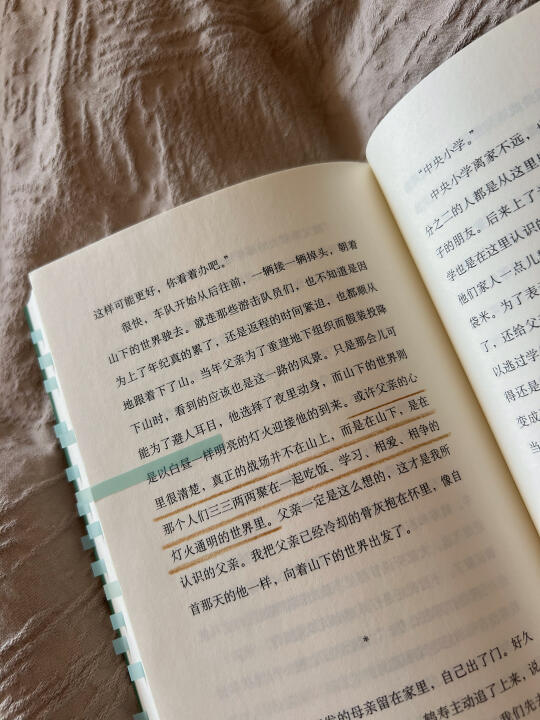 这样可能更好，你看着办吧。”
很快，车队开始从后往前，一辆接一辆掉头，朝着
山下的世界驶去。就连那些游击队员们，也不知道是因
为上了年纪真的累了，还是返程的时间紧迫，也都顺从
地跟着下了山。当年父亲为了重建地下组织而假装投降
下山时，看到的应该也是这一路的风景。只是那会儿可
能为了避人耳目，他选择了夜里动身，而山下的世界则
是以白昼一样明亮的灯火迎接他的到来。或许父亲的心
里很清楚，真正的战场并不在山上，而是在山下，是在
那个人们三三两两聚在一起吃饭、学习、相爱、相争的
灯火通明的世界里。父亲一定是这么想的，这才是我所
认识的父亲。我把父亲已经冷却的骨灰抱在怀里，像自
首那天的他一样，向着山下的世界出发了。
*
发的母亲留在家里，自己出了门。好久
鹤寿主动追了上来，说
我们先去
“中央小学。”
中央小学离家不远，
分之二的人都是从这里
子的朋友。后来上了
学也是在这里认识的
他们家人一点儿
袋米。为了表
了，还给父
以逃过学
得还是
变成